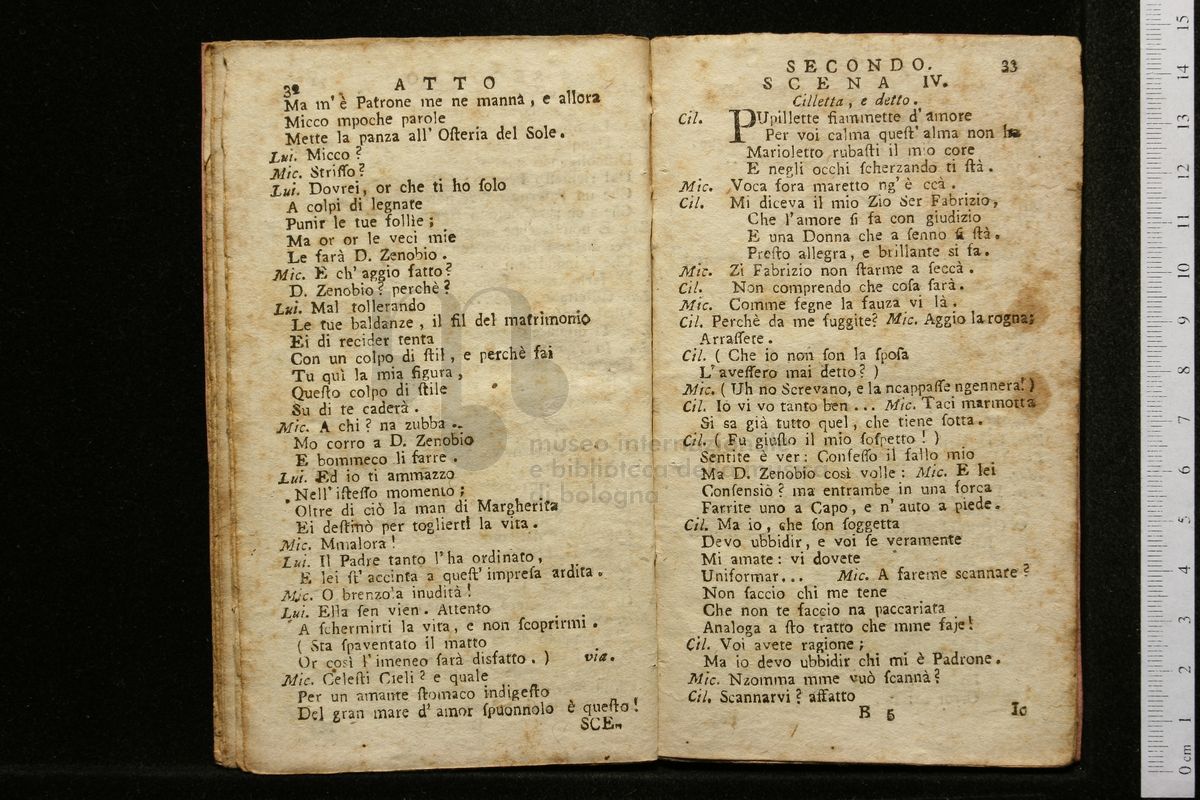 32 ATTO
Ma m' è Patrone me ne mannà, e allora
Micco mpoche parole
Mette la panza all' Oſteria del Sole.
Lui. Micco?
Mic. Striſſo?
Lui. Dovrei, or che ti ho ſolo
A colpi di legnate
Punir le tue follìe;
Ma or or le veci mie
Le farà D. Zenobio.
Mic. E ch' aggio fatto?
D. Zenobio? perchè?
Lui. Mal tollerando
Le tue baldanze, il fil del matrimonio
Ei di recider tenta
Con un colpo di ſtil, e perchè fai
Tu quì la mia figura,
Queſto colpo di ſtile
Su di te caderà.
Mic. A chi? na zubba..
Mo corro a D. Zenobio
E bommeco li farre.
Lui. Ed io ti ammazzo
Nell' iſteſſo momento;
Oltre di ciò la man di Margherita
Ei deſtinò per toglierti la vita.
Mic. Mmalora!
Lui. Il Padre tanto l' ha ordinato,
E lei ſt' accinta a queſt' impreſa ardita.
Mic. O brenzo'a inudità!
Lui. Ella ſen vien. Attento
A ſchermirti la vita, e non ſcoprirmi.
( Sta ſpaventato il matto
Or così l' imeneo ſarà disfatto. ) via.
Mic. Celeſti Cieli? e quale
Per un amante ſtomaco indigeſto
Del gran mare d' amor ſpuonnolo è queſto!
SCE-
SECONDO. 33
SCENA IV.
Cilletta, e detto.
Cil. PUpillette fiammette d' amore
Per voi calma queſt' alma non ha
Marioletto rubaſti il mio core
E negli occhi ſcherzando ti ſtà.
Mic. Voca fora maretto ng' è ccà.
Cil. Mi diceva il mio Zio Ser Fabrizio,
Che l' amore ſi fa con giudizio
E una Donna che a ſenno ſi ſtà.
Preſto allegra, e brillante si fa.
Mic. Zi Fabrizio non ſtarme a ſeccà.
Cil. Non comprendo che coſa ſarà.
Mic. Comme fegne la fauza vi là.
Cil. Perchè da me fuggite? Mic. Aggio la rogna;
Arraſſete.
Cil. ( Che io non ſon la ſpoſa
L' aveſſero mai detto? )
Mic. ( Uh no Screvano, e la ncappaſſe ngennera! )
Cil. Io vi vo tanto ben ... Mic. Taci marmotta
Si sa già tutto quel, che tiene ſotta.
Cil. ( Fu giuſto il mio ſoſpetto! )
Sentite è ver: Confeſſo il fallo mio
Ma D. Zenobio così volle: Mic. E lei
Conſensiò? ma entrambe in una forca
Farrite uno a Capo, e n' auto a piede.
Cil. Ma io, che ſon ſoggetta
Devo ubbidir, e voi ſe veramente
Mi amate: vi dovete
Uniformar... Mic. A fareme scannare?
Non faccio chi me tene
Che non te faccio na paccariata
Analoga a ſto tratto che mme faje!
Cil. Voi avete ragione;
Ma io devo ubbidir chi mi è Padrone.
Mic. Nzomma mme vuò ſcannà?
Cil. Scannarvi? affatto
B 5 Io
museo internazionale
e biblioteca della musica
di bologna
0 cm 1 2 3 4 5 6 7 8 9 10 11 12 13 14 15